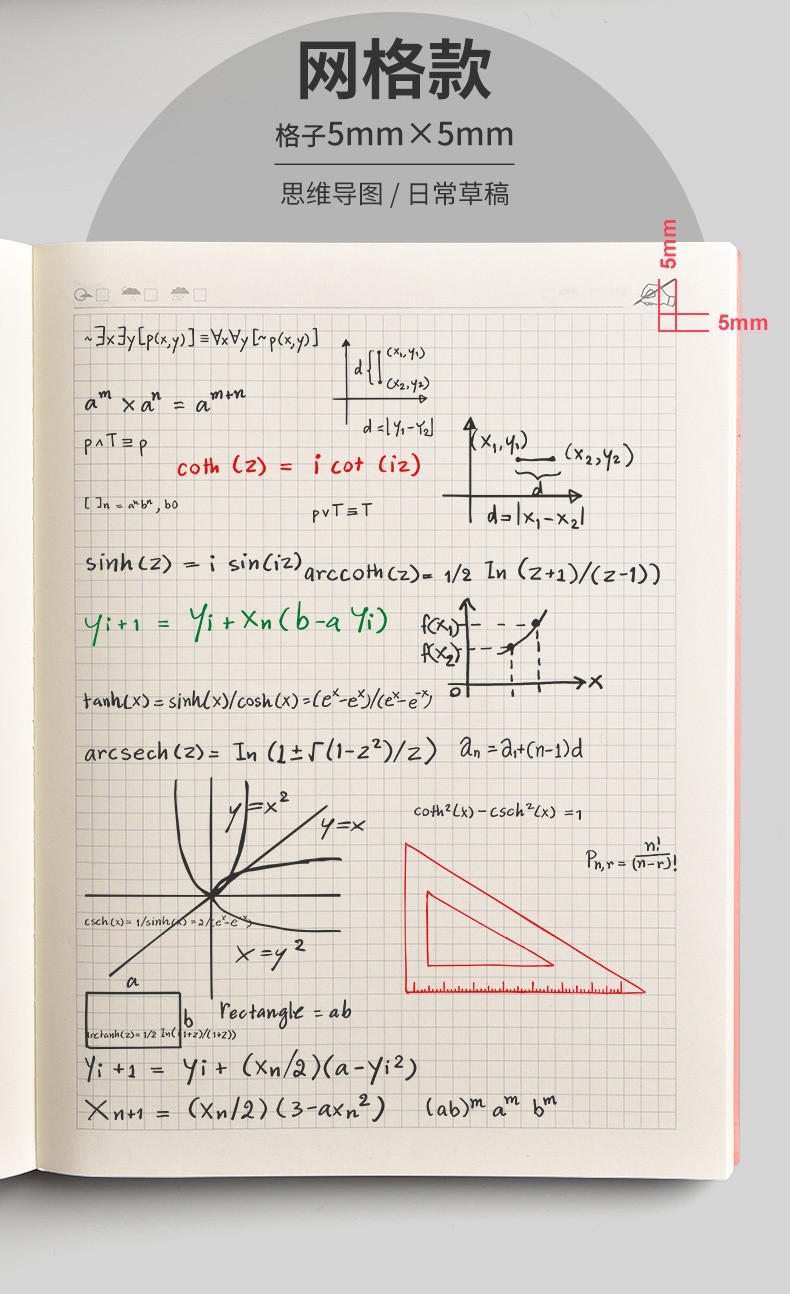 网格款
格子5mm×5mm
思维导图 / 日常草稿
5mm
5mm
~∃x∃y[p(x,y)]≡∀x∀y[~p(x,y)]
d{ (x₁,y₁)
(x₂,y₂)
d=|y₁-y₂|
aᵐ × aⁿ = aᵐ⁺ⁿ
p∧T≡p
coth (z) = i cot (iz)
(x₁,y₁) (x₂,y₂)
d
d=|x₁-x₂|
[ ]n = aⁿbⁿ, b0
p∨T≡T
sinh(z) = i sin(iz)
arccoth(z)= 1/2 In (z+1)/(z-1))
yi+1 = yi+xn(b-a yi)
f(x₁)
f(x₂)
0 x
tanh(x)=sinh(x)/cosh(x)=(eˣ-eˣ)/(eˣ-e⁻ˣ)
arcsech(z)= In (1±√(1-z²)/z)
an=a₁+(n-1)d
y=x²
y=x
coth²(x)-csch²(x) =1
Pn,r = n!/(n-r)!
csch(x)= 1/sinh(x) =2/(eˣ-e⁻ˣ)
x=y²
a
b
rectangle = ab
arctanh(z)=1/2 In((1+z)/(1+z))
yi+1 = yi+(xn/2)(a-yi²)
xn+1 = (xn/2)(3-axn²)
(ab)ᵐ aᵐ bᵐ